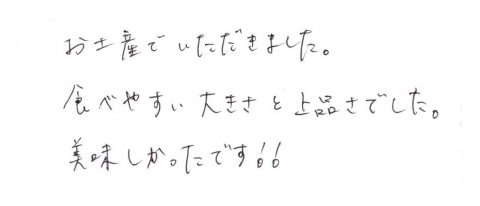 お土産でいただきました。
食べやすい大きさと上品さでした。
美味しかったです!!